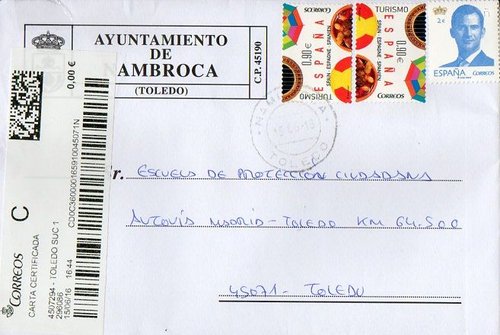 AYUNTAMIENTO
DE
NAMBROCA
(TOLEDO)
C.P. 45190
0,00 €
CD0C3600001659104507 1N
C
CORREOS
CARTA CERTIFICADA
4507294 - TOLEDO SUC 1
296086
15/06/16 16:44
TURISMO
ESPAÑA
SPAIN ESPAGNE SPANIEN
0,90 €
CORREOS
TURISMO
ESPAÑA
SPAIN ESPAGNE SPANIEN
0,90 €
CORREOS
2 €
ESPAÑA
CORREOS
NAMBROCA
TOLEDO
Sr. ESCUELA DE PROTECCIÓN CIUDADANA
AUTOVÍA MADRID-TOLEDO KM 64.500
45071- TOLEDO